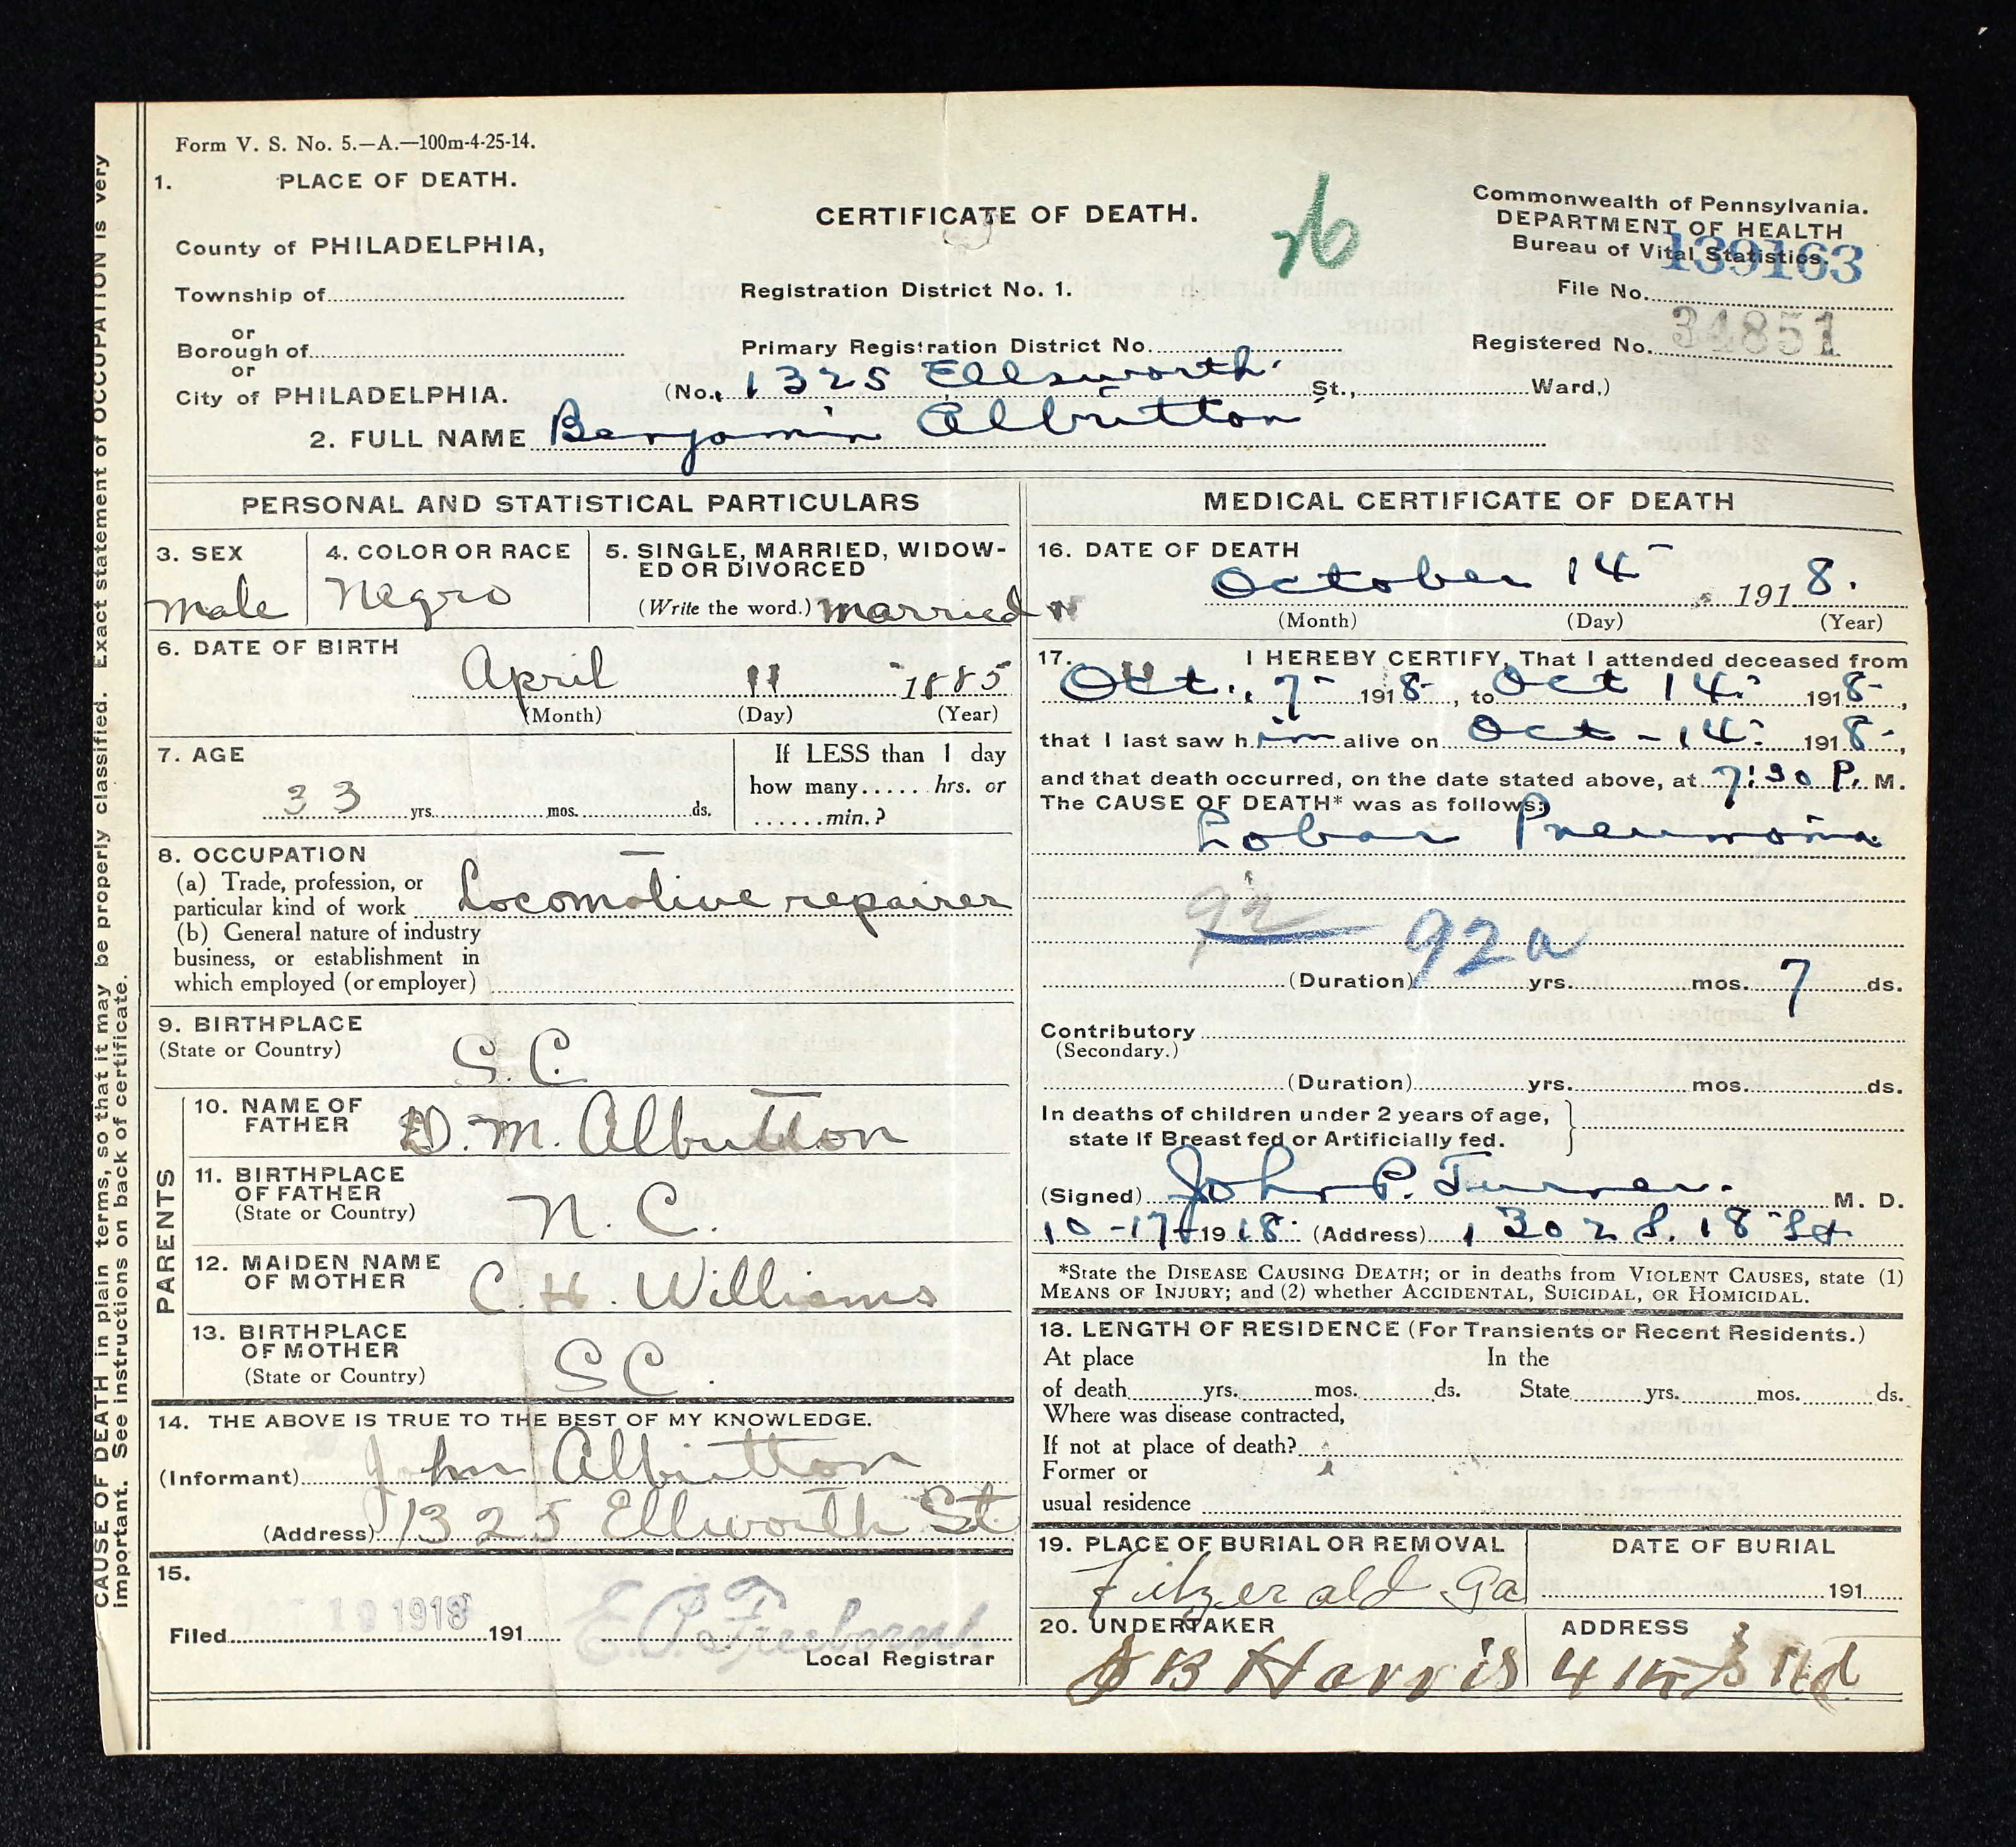 Form V. S. No. 5.—A.—100m-4-25-14.
1. PLACE OF DEATH.
County of PHILADELPHIA,
Township of
or
Borough of
or
City of PHILADELPHIA.
CERTIFICATE OF DEATH.
Registration District No. 1.
Primary Registration District No.
(No. 1325 Ellsworth St., Ward.)
Commonwealth of Pennsylvania.
DEPARTMENT OF HEALTH
Bureau of Vital Statistics.
139163
File No.
Registered No. 34851
2. FULL NAME Benjamin Albritton
PERSONAL AND STATISTICAL PARTICULARS
3. SEX
male
4. COLOR OR RACE
Negro
5. SINGLE, MARRIED, WIDOW-
ED OR DIVORCED
(Write the word.) married
6. DATE OF BIRTH
April 11 1885
(Month) (Day) (Year)
7. AGE
33 yrs. mos. ds.
If LESS than 1 day
how many...... hrs. or
......min.?
8. OCCUPATION
(a) Trade, profession, or
particular kind of work Locomotive repairer
(b) General nature of industry
business, or establishment in
which employed (or employer)
9. BIRTHPLACE
(State or Country) S.C.
PARENTS
10. NAME OF
FATHER D. M. Albritton
11. BIRTHPLACE
OF FATHER
(State or Country) N. C.
12. MAIDEN NAME
OF MOTHER C. H. Williams
13. BIRTHPLACE
OF MOTHER
(State or Country) SC.
14. THE ABOVE IS TRUE TO THE BEST OF MY KNOWLEDGE.
(Informant) John Albritton
(Address) 1325 Ellworth St
15.
Filed 19 1918 191 E. P. Freeborn.
Local Registrar
MEDICAL CERTIFICATE OF DEATH
16. DATE OF DEATH
October 14 1918.
(Month) (Day) (Year)
17. I HEREBY CERTIFY, That I attended deceased from
Oct. 7 1918, to Oct 14 1918,
that I last saw him alive on Oct - 14 1918,
and that death occurred, on the date stated above, at 7:30 P. M.
The CAUSE OF DEATH* was as follows:
Lobar Pneumonia
92 92a
(Duration) yrs. mos. 7 ds.
Contributory
(Secondary.)
(Duration) yrs. mos. ds.
In deaths of children under 2 years of age,
state if Breast fed or Artificially fed.
(Signed) John P. Turner. M. D.
10-17-1918 (Address) 1302 S. 18 St
*State the DISEASE CAUSING DEATH; or in deaths from VIOLENT CAUSES, state (1)
MEANS OF INJURY; and (2) whether ACCIDENTAL, SUICIDAL, OR HOMICIDAL.
18. LENGTH OF RESIDENCE (For Transients or Recent Residents.)
At place In the
of death yrs. mos. ds. State yrs. mos. ds.
Where was disease contracted,
If not at place of death?
Former or
usual residence
19. PLACE OF BURIAL OR REMOVAL
Fitzgerald Ga
DATE OF BURIAL
191
20. UNDERTAKER
B Harris
ADDRESS
CAUSE OF DEATH in plain terms, so that it may be properly classified. Exact statement of OCCUPATION is very
important. See instructions on back of certificate.